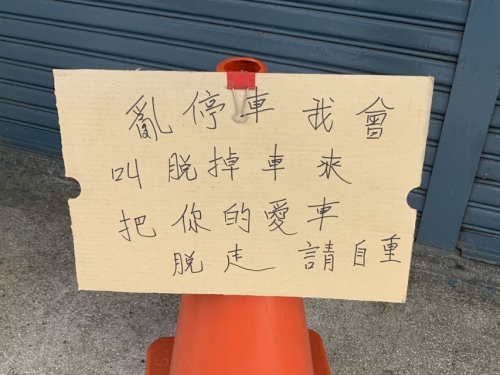 亂停車我會
叫脫掉車來
把你的愛車
脫走請自重